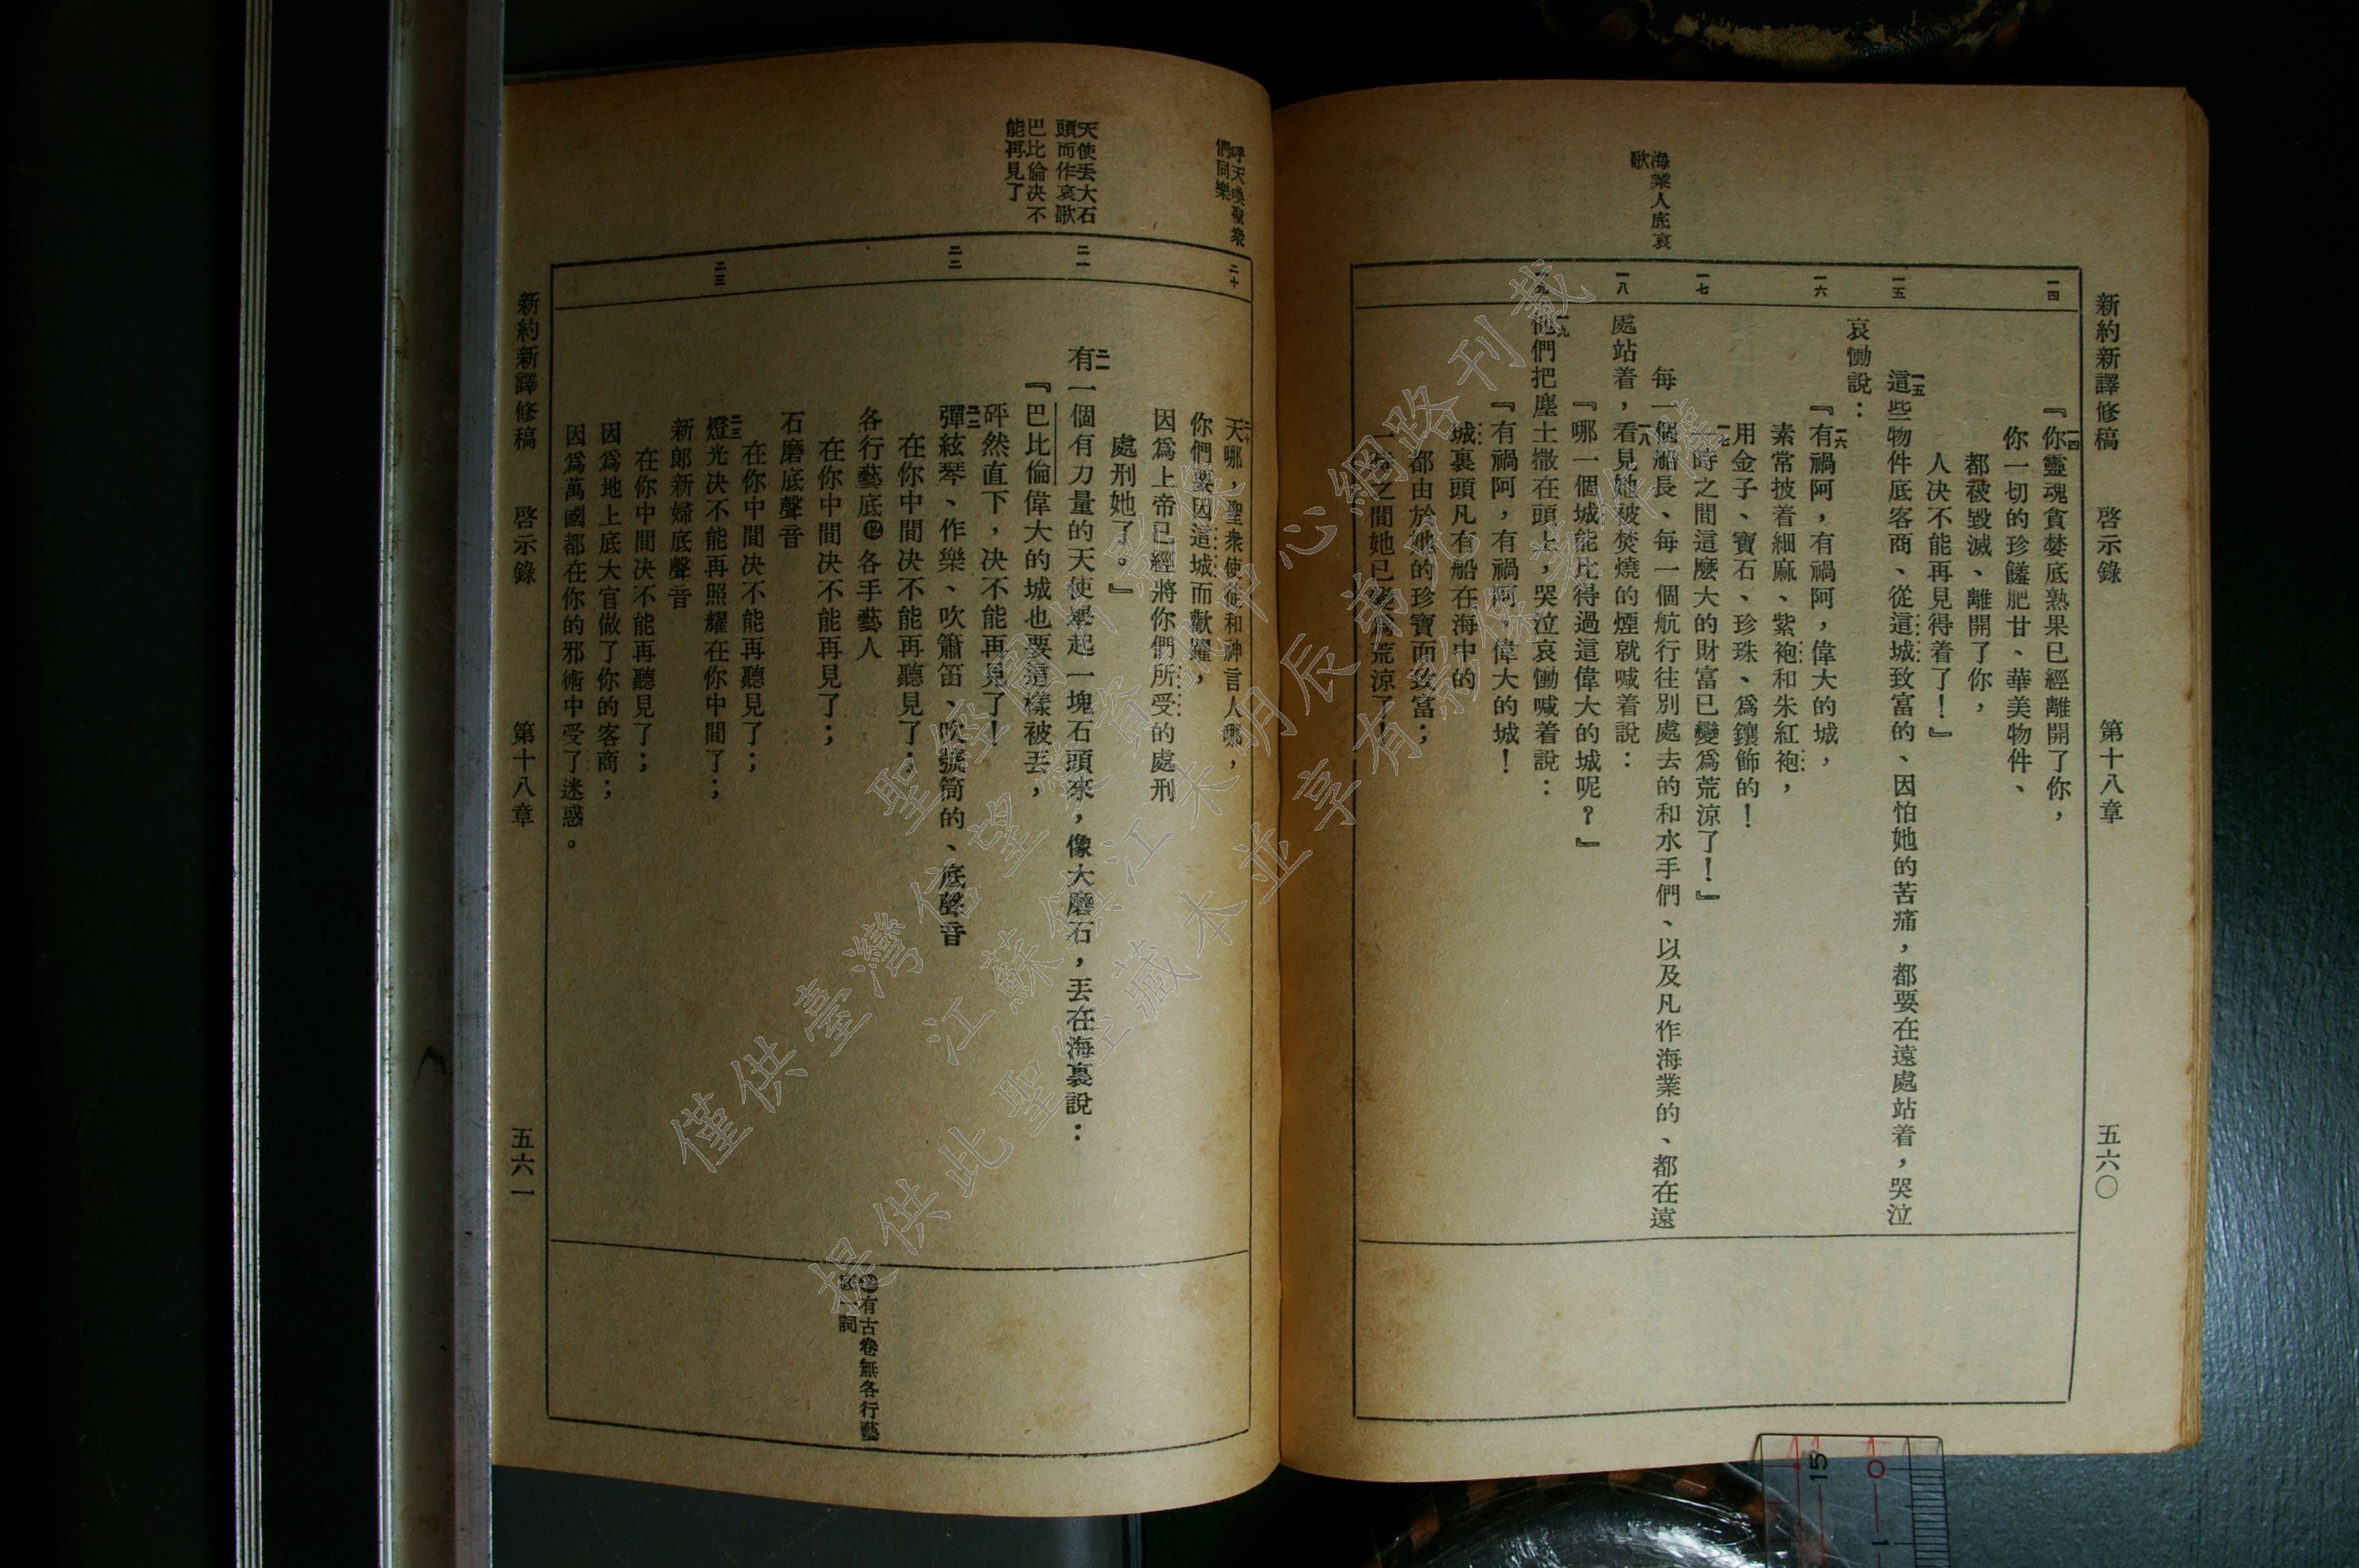 新約新譯修稿　　啓示錄　　第十八章　　五六〇
海業人底哀
歌
一四
一五
一六
一七
一八
一九
一四『你靈魂貪婪底熟果已經離開了你，
你一切的珍饈肥甘、華美物件、
都被毀滅、離開了你，
人決不能再見得着了！』
一五這些物件底客商、從這城致富的、因怕她的苦痛，都要在遠處站着，哭泣
哀慟說：
一六『有禍阿，有禍阿，偉大的城，
素常披着細麻、紫袍和朱紅袍，
用金子、寶石、珍珠、爲鑲飾的！
一七一時之間這麼大的財富已變爲荒涼了！』
每一個船長、每一個航行往別處去的和水手們、以及凡作海業的、都在遠
處站着，一八看見她被焚燒的煙就喊着說：
『哪一個城能比得過這偉大的城呢？』
一九他們把塵土撒在頭上，哭泣哀慟喊着說：
『有禍阿，有禍阿，偉大的城！
城裏頭凡有船在海中的
都由於她的珍寶而致富；
一時之間她已變爲荒涼了！
呼天喚聖衆
們同樂
天使丟大石
頭而作哀歌
巴比倫決不
能再見了
二十
二一
二二
二三
二十天哪，聖衆使徒和神言人哪，
你們要因這城而歡躍，
因爲上帝已經將你們所受的處刑
處刑她了。』
二一有一個有力量的天使舉起一塊石頭來，像大磨石，丟在海裏說：
『巴比倫偉大的城也要這樣被丟，
砰然直下，決不能再見了！
二二彈絃琴、作樂、吹簫笛、吹號筒的、底聲音
在你中間決不能再聽見了；
各行藝底各手藝人
在你中間決不能再見了；
石磨底聲音
在你中間決不能再聽見了；
二三燈光決不能再照耀在你中間了；
新郎新婦底聲音
在你中間決不能再聽見了；
因爲地上底大官做了你的客商；
因爲萬國都在你的邪術中受了迷惑。
有古卷無各行藝
底一詞
新約新譯修稿　　啓示錄　　第十八章　　五六一
僅供臺灣信望愛資訊中心網路刊載
江蘇鎮江朱明辰弟兄
提供此聖經藏本並享有影像著作權
15
0
1